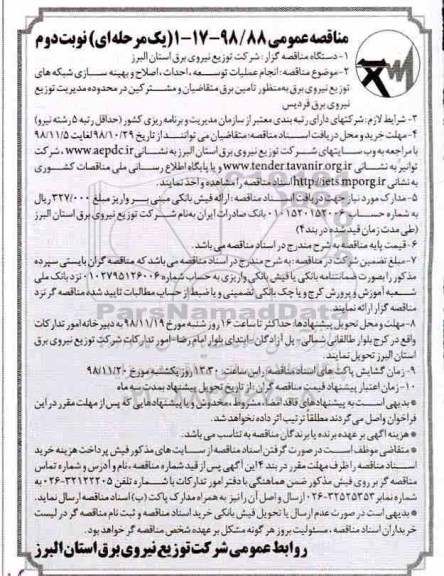 مناقصه عمومی ۹۸/۸۸-۱۷-۱ (یک مرحله ای) نوبت دوم
۱- دستگاه مناقصه گزار: شرکت توزیع نیروی برق استان البرز
۲- موضوع مناقصه: انجام عملیات توسعه، احداث، اصلاح و بهینه سازی شبکه های
توزیع نیروی برق به منظور تامین برق متقاضیان و مشترکین در محدوده مدیریت توزیع
نیروی برق فردیس
۳- شرایط لازم: شرکتهای دارای رتبه بندی معتبر از سازمان مدیریت و برنامه ریزی کشور (حداقل رتبه ۵ رشته نیرو)
۴- مهلت خرید و محل دریافت اسناد مناقصه: متقاضیان می توانند از تاریخ ۹۸/۱۰/۲۹ لغایت ۹۸/۱۱/۵
با مراجعه به وب سایتهای شرکت توزیع نیروی برق استان البرز به نشانی www.aepdc.ir، شرکت
توانیر به نشانی www.tender.tavanir.org.ir و یا پایگاه اطلاع رسانی ملی مناقصات کشوری
به نشانی http://iets.mporg.ir اسناد مناقصه را مشاهده و اخذ نمایند.
۵- مدارک مورد نیاز جهت دریافت اسناد مناقصه: ارائه فیش بانکی مبنی بر واریز مبلغ ۳۲۷/۰۰۰ ریال
به شماره حساب بانک صادرات ایران به نام شرکت توزیع نیروی برق استان البرز
(طی مدت زمان قید شده در بند ۴)
۶- قیمت پایه مناقصه به شرح مندرج در اسناد مناقصه می باشد.
۷- مبلغ تضمین شرکت در مناقصه: به شرح مندرج در اسناد مناقصه می باشد که مناقصه گران بایستی سپرده
مذکور را بصورت ضمانتنامه بانکی یا فیش بانکی واریزی به حساب شماره ۰۱۰۲۷۹۵۱۲۶۰۰۶ نزد بانک ملی
شعبه آموزش و پرورش کرج و یا چک بانکی تضمینی و یا ضبط از حساب مطالبات تایید شده مناقصه گر نزد
مناقصه گزار ارائه نمایند.
۸- مهلت و محل تحویل پیشنهادها: حداکثر تا ساعت ۱۶ روز شنبه مورخ ۹۸/۱۱/۱۹ به دبیرخانه امور تدارکات
واقع در کرج بلوار طالقانی شمالی- پل آزادگان- ابتدای بلوار امام رضا- امور تدارکات شرکت توزیع نیروی برق
استان البرز تحویل نمایند.
۹- زمان گشایش پاکت های اسناد مناقصه: راس ساعت ۱۳:۳۰ روز یکشنبه مورخ ۹۸/۱۱/۲۰
۱۰- زمان اعتبار پیشنهاد قیمت مناقصه گران: از تاریخ تحویل پیشنهاد بمدت سه ماه
* بدیهی است به پیشنهادهای فاقد امضا، مشروط، مخدوش و یا پیشنهادهایی که پس از مهلت مقرر در این
فراخوان واصل می گردند مطلقا ترتیب اثر داده نخواهد شد.
* هزینه آگهی بر عهده برنده یا برندگان مناقصه به تناسب می باشد.
* متقاضی موظف است در صورت گرفتن اسناد مناقصه از سایت های مذکور فیش پرداخت هزینه خرید
اسناد مناقصه را ظرف مهلت مقرر در بند ۴ این آگهی پس از قید شماره مناقصه، نام و آدرس و شماره تماس
مناقصه گر بر روی فیش مذکور ضمن هماهنگی با دفتر امور تدارکات با شماره تلفن ۳۲۱۲۲۲۰۵-۰۲۶ به
شماره نمابر ۳۲۵۲۵۳۵۳-۰۲۶ ارسال و اصل آن را نیز به همراه مدارک پاکت (ب) اسناد مناقصه ارسال نماید.
* بدیهی است در صورت عدم ارسال یا تحویل فیش بانکی خرید اسناد مناقصه و ثبت نام مناقصه گر در لیست
خریداران اسناد مناقصه، مسئولیت بروز هر گونه مشکل بر عهده شخص مناقصه گر خواهد بود.
روابط عمومی شرکت توزیع نیروی برق استان البرز
ParsNamadData